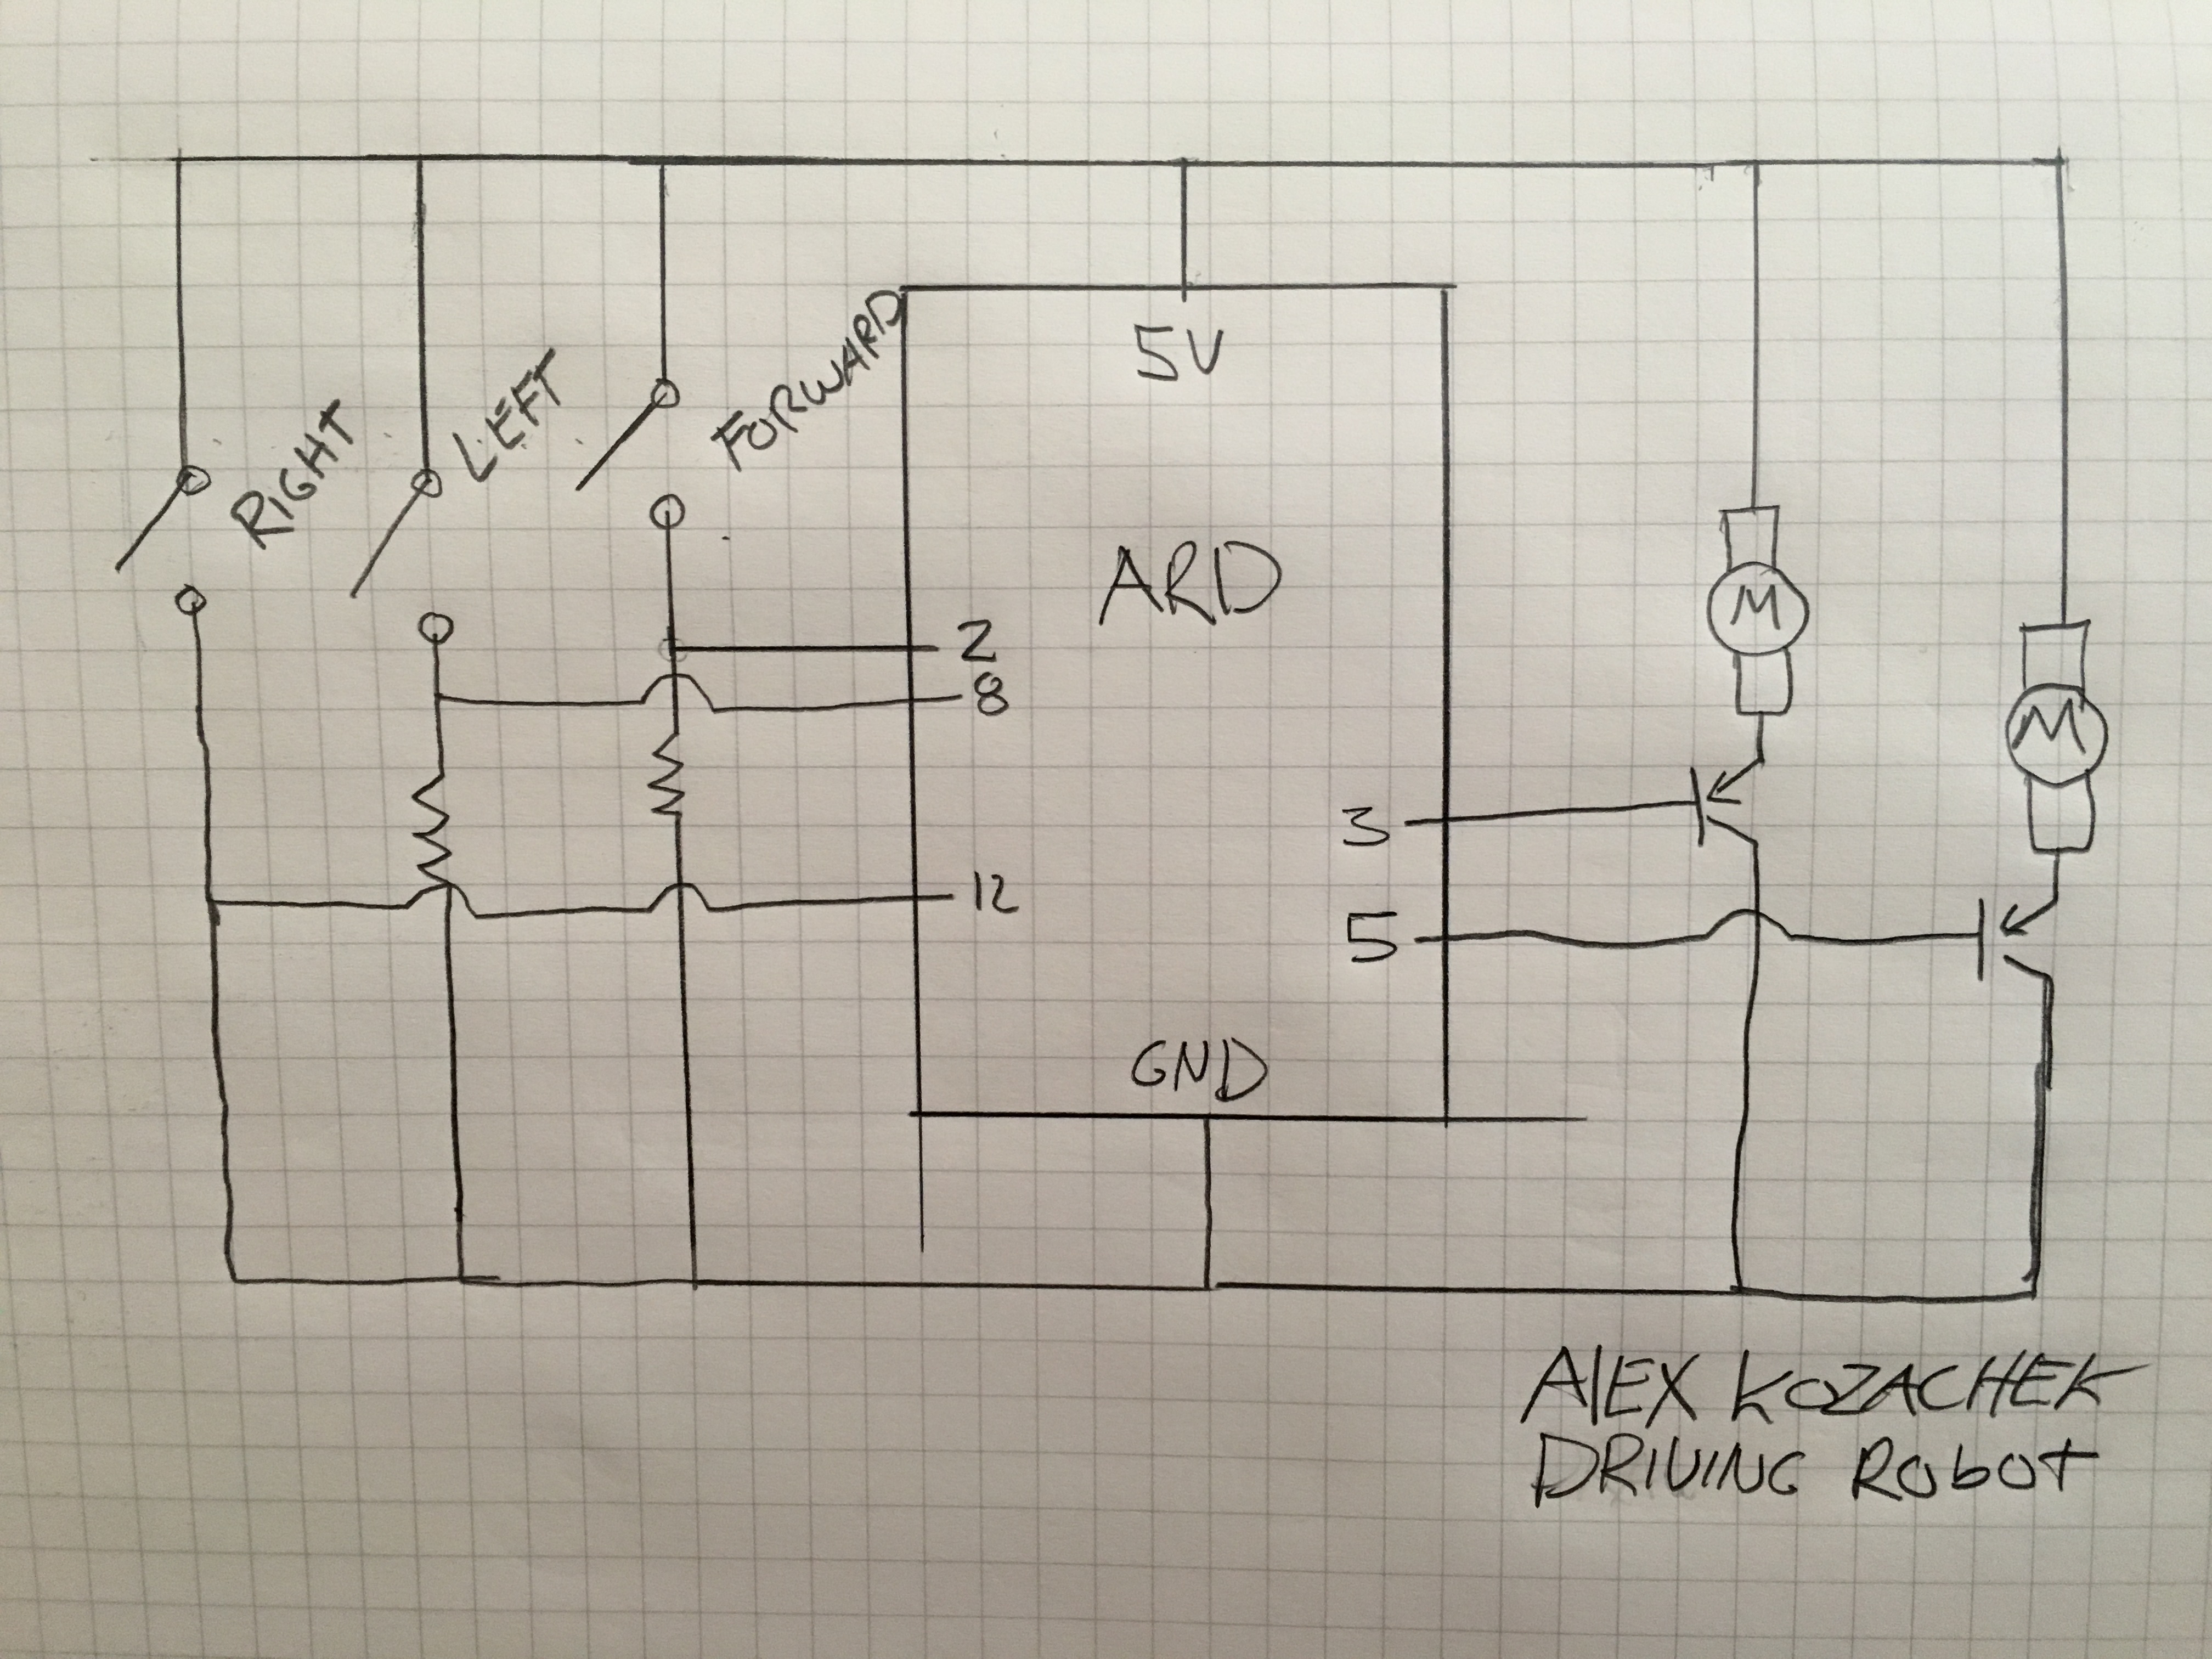 RIGHT
LEFT
FORWARD
5V
ARD
2
8
12
3
5
GND
M
M
ALEX KOZACHEK
DRIVING ROBOT